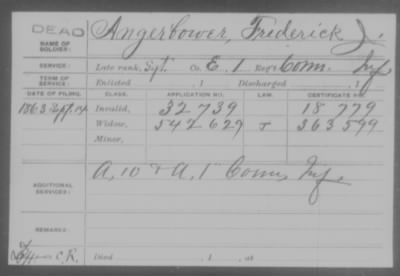 DEAD
NAME OF SOLDIER: Angerbower, Frederick J.
SERVICE: Late rank, Sgt. Co. E, 1 Reg't Conn. Inf.
TERM OF SERVICE: Enlisted , 1 Discharged , 1
DATE OF FILING. CLASS. APPLICATION NO. LAW. CERTIFICATE NO.
1863 Sept. 14 Invalid, 32 739 18 779
Widow, 542 629 363 599
Minor,
ADDITIONAL SERVICES: A, 10 & A, 1 Conn. Inf.
REMARKS:
C. R.
Died , 1 , at